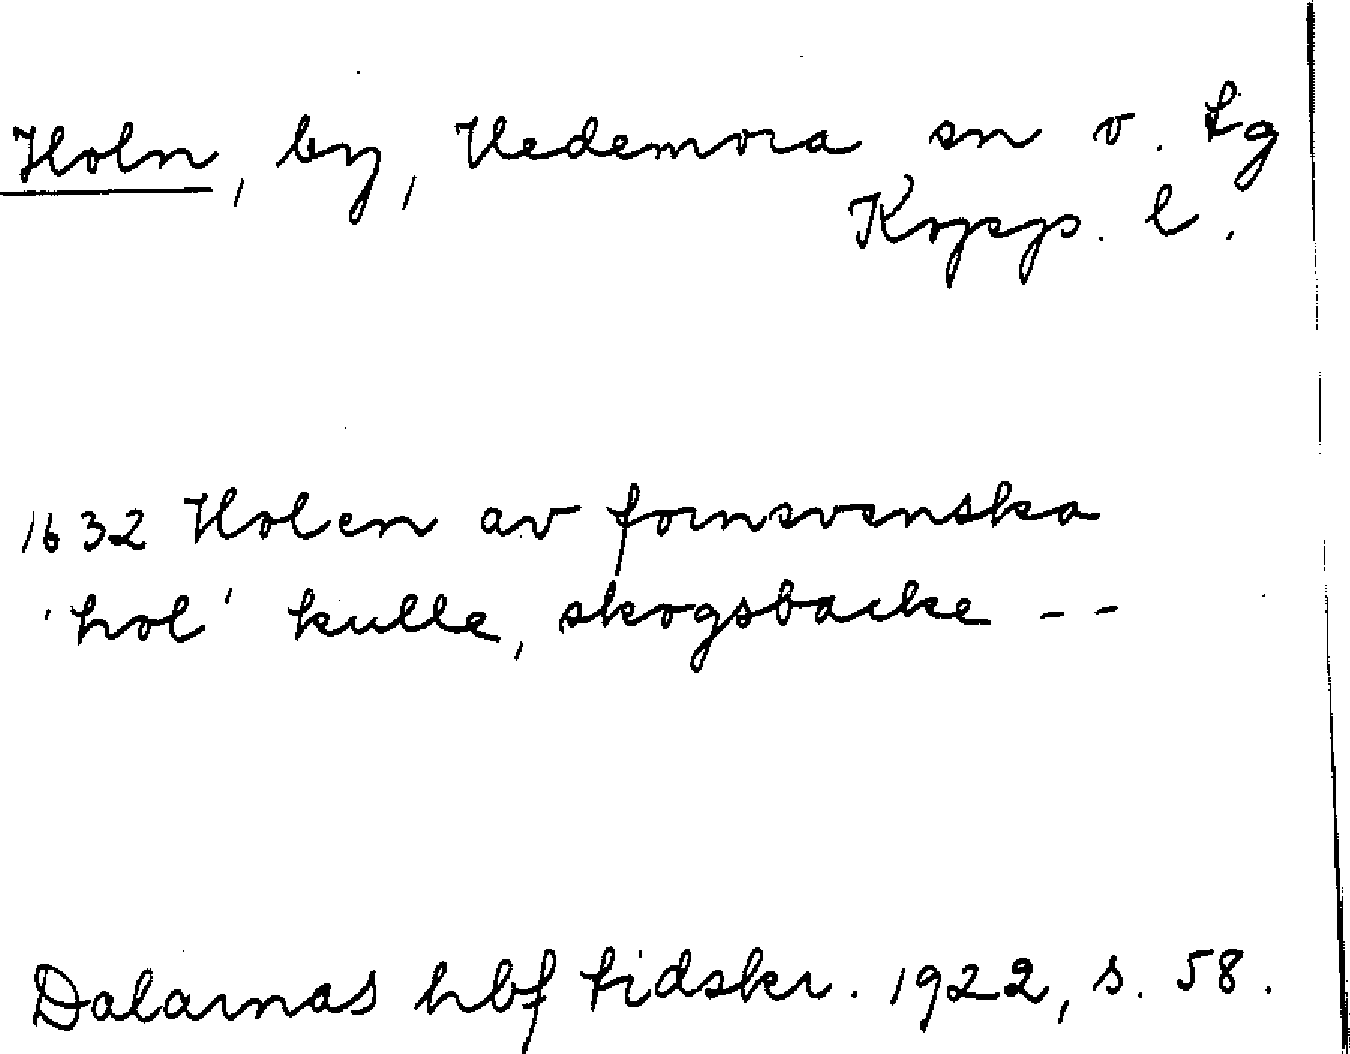 Holn, by, Hedemora sn v. tg
Kopp. l.
1632 Holen av fornsvenska
'hol' kulle, skogsbacke - -
Dalarnas hbf tidskr. 1922, s. 58.